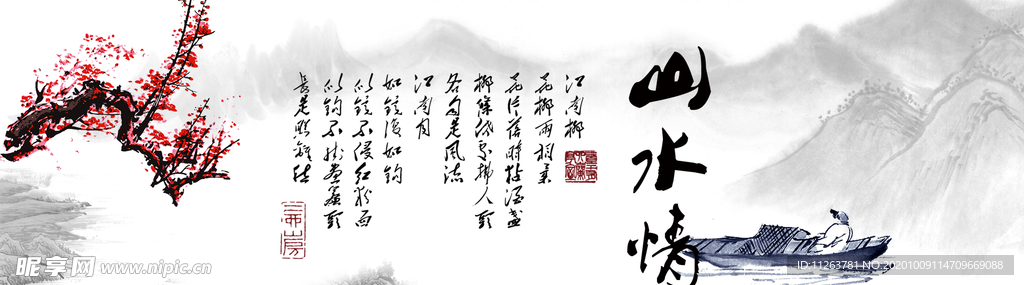 山水情
江南柳
花柳两相柔
花片落时粘酒盏
柳条低处拂人头
各自是风流
江南月
如镜复如钩
似镜不侵红粉面
似钩不挂画帘头
长是照离愁
昵享网 www.nipic.cn
ID:11263781 NO:20201009114709669088